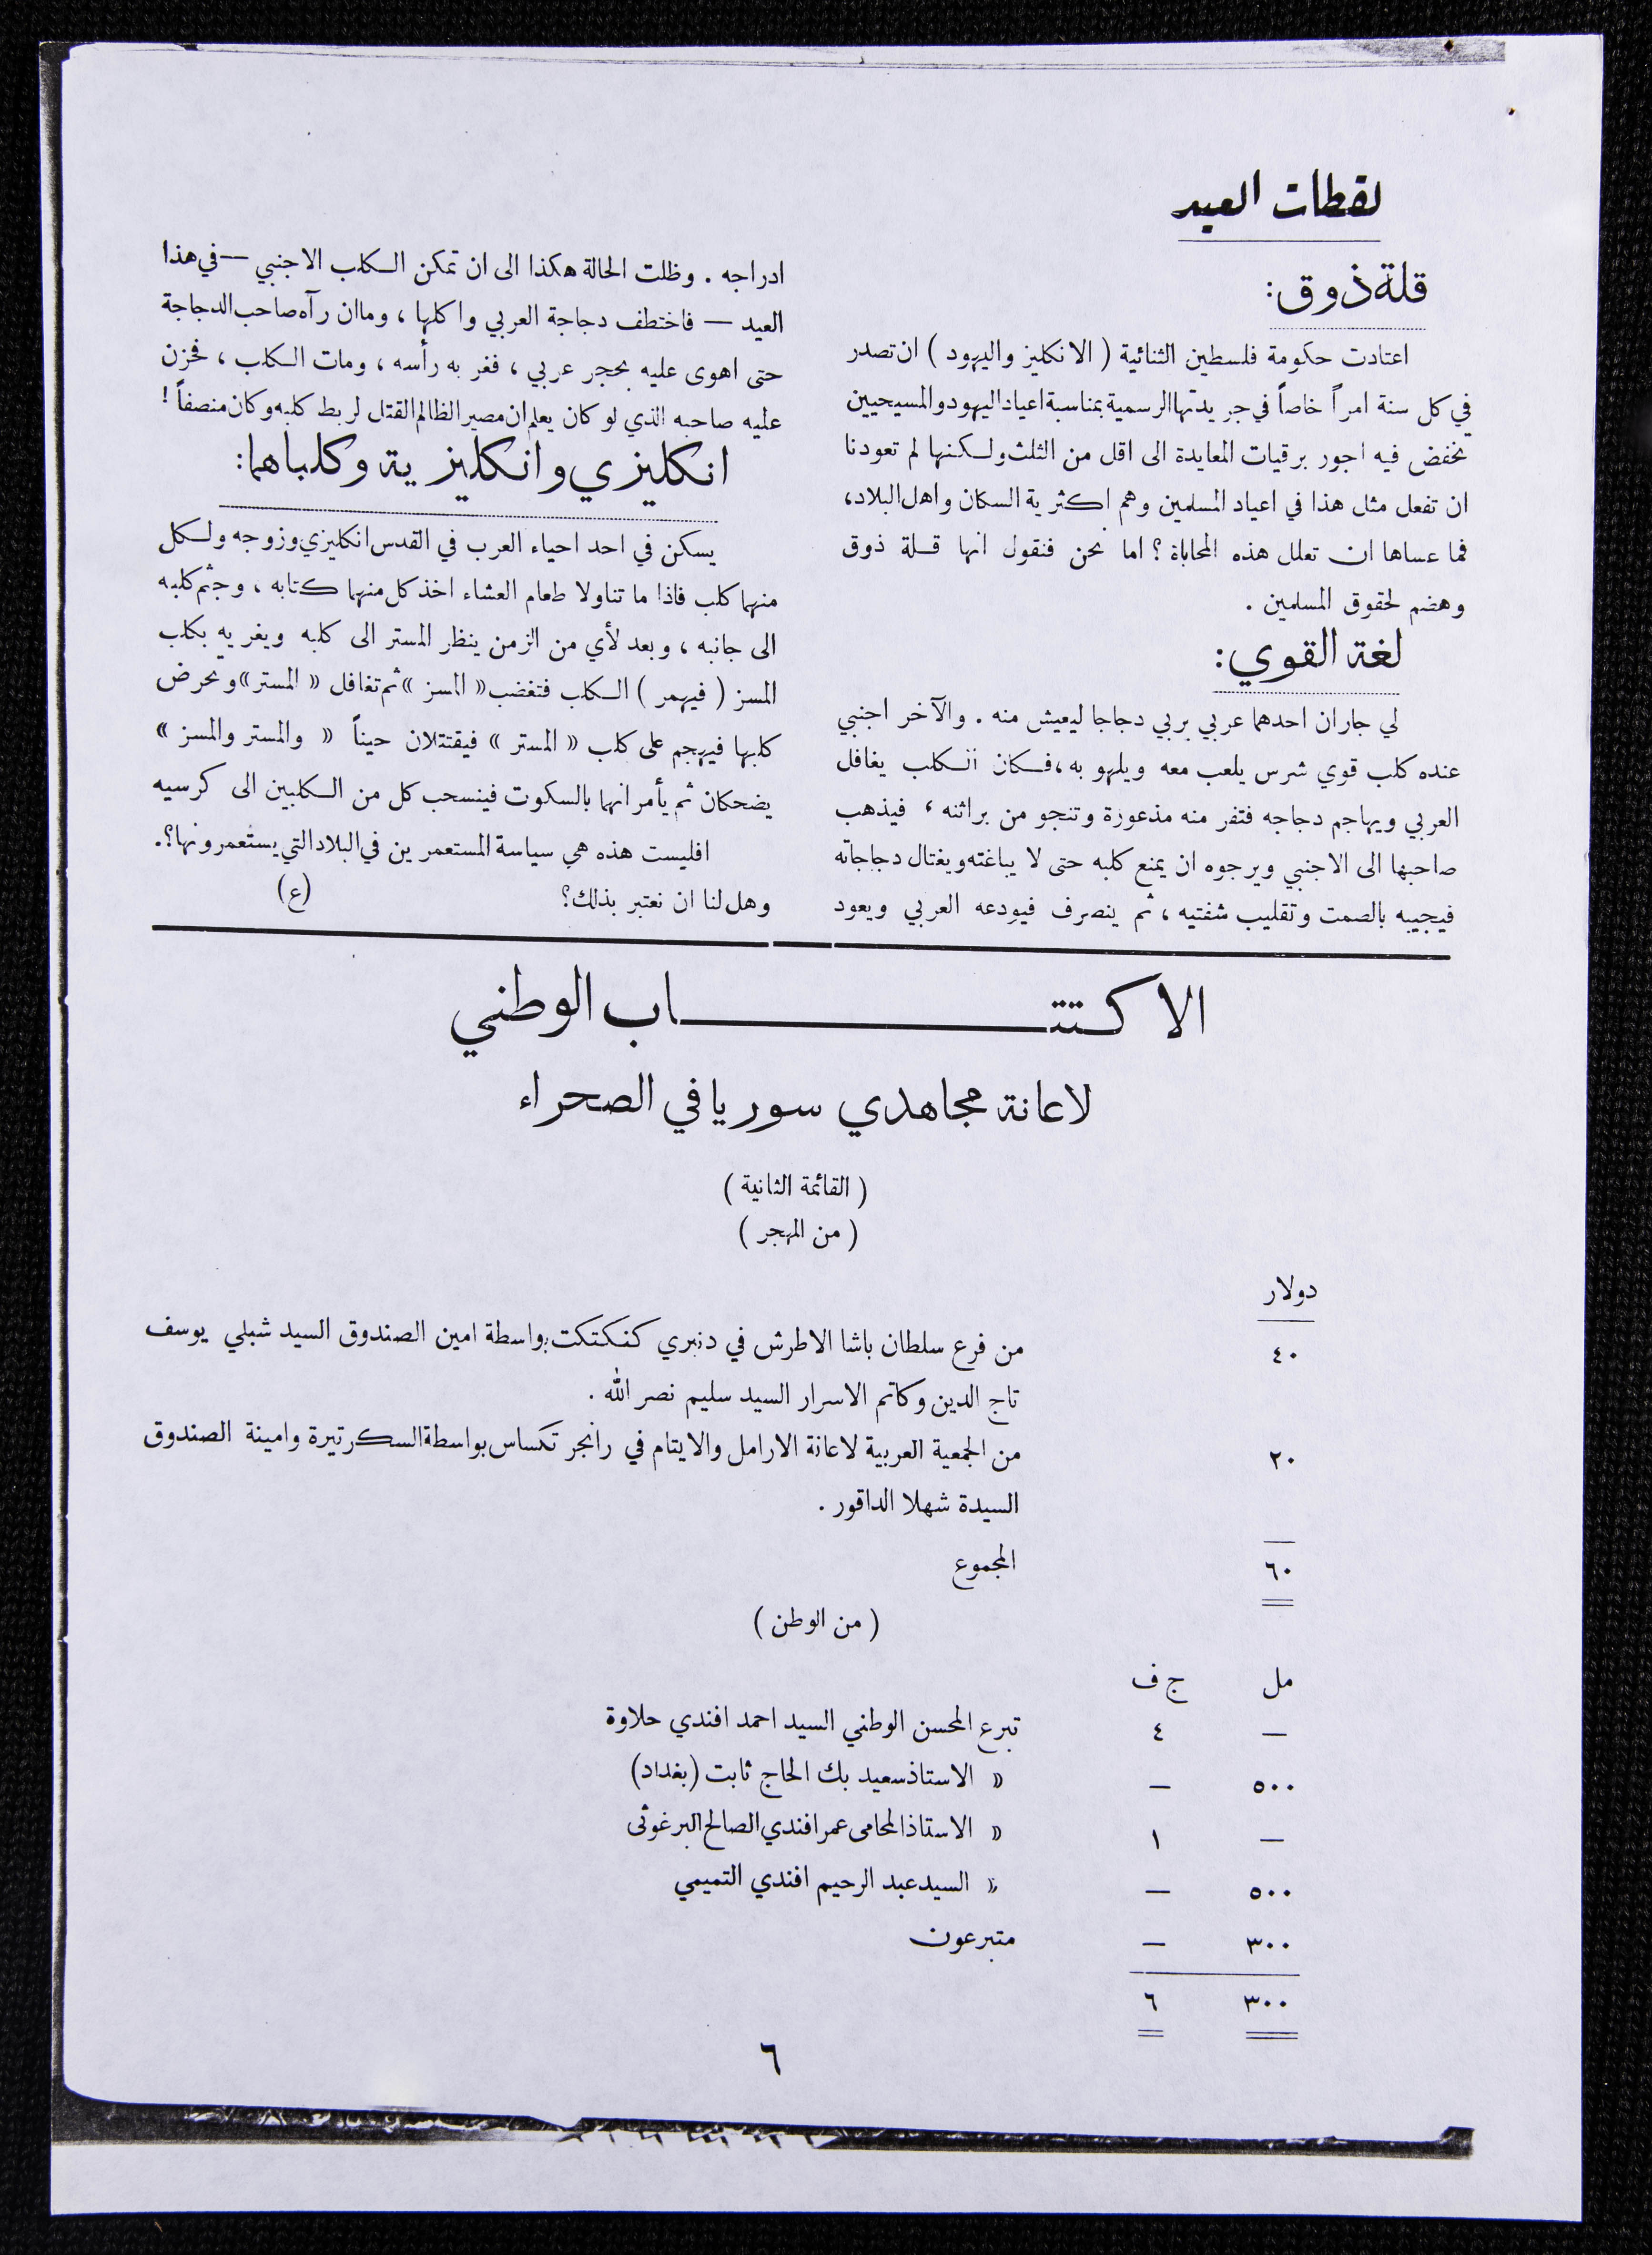 لقطات العيد
قلة ذوق:
اعتادت حكومة فلسطين الثنائية ( الانكليز واليهود ) ان تصدر
في كل سنة امراً خاصاً في جريدتها الرسمية بمناسبة اعياد اليهود والمسيحيين
تخفض فيه اجور برقيات المعايدة الى اقل من الثلث ولكنها لم تعودنا
ان تفعل مثل هذا في اعياد المسلمين وهم اكثرية السكان واهل البلاد،
فما عساها ان تعلل هذه المحاباة ؟ اما نحن فنقول انها قلة ذوق
وهضم لحقوق المسلمين .
لغة القوي:
لي جاران احدهما عربي يربي دجاجا ليعيش منه . والآخر اجنبي
عنده كلب قوي شرس يلعب معه ويلهو به، فكان الكلب يغافل
العربي ويهاجم دجاجه فتفر منه مذعورة وتنجو من براثنه ، فيذهب
صاحبها الى الاجنبي ويرجوه ان يمنع كلبه حتى لا يباغته ويغتال دجاجاته
فيجيبه بالصمت وتقليب شفتيه ، ثم ينصرف فيودعه العربي ويعود
ادراجه . وظلت الحالة هكذا الى ان تمكن الكلب الاجنبي — في هذا
العيد — فاختطف دجاجة العربي واكلها ، وما ان رآه صاحب الدجاجة
حتى اهوى عليه بحجر عربي ، ففغر به رأسه ، ومات الكلب ، فحزن
عليه صاحبه الذي لو كان يعلم ان مصير الظالم القتل لربط كلبه وكان منصفاً !
انكليزي وانكليزية وكلباهما:
يسكن في احد احياء العرب في القدس انكليزي وزوجه ولكل
منهما كلب فاذا ما تناولا طعام العشاء اخذ كل منهما كتابه ، وجثم كلبه
الى جانبه ، وبعد لأي من الزمن ينظر المستر الى كلبه ويغريه بكلب
المسز ( فيهمر ) الكلب فتغضب « المسز » ثم تغافل « المستر » وتحرض
كلبها فيهجم على كلب « المستر » فيقتتلان حيناً « والمستر والمسز »
يضحكان ثم يأمرانهما بالسكوت فينسحب كل من الكلبين الى كرسيه
افليست هذه هي سياسة المستعمرين في البلاد التي يستعمرونها؟.
وهل لنا ان نعتبر بذلك؟ (ع)
الاكتتـــــــاب الوطني
لاعانة مجاهدي سوريا في الصحراء
( القائمة الثانية )
( من المهجر )
دولار
٤٠ من فرع سلطان باشا الاطرش في دنبري كنكتكت بواسطة امين الصندوق السيد شبلي يوسف
تاج الدين وكاتم الاسرار السيد سليم نصر الله .
٢٠ من الجمعية العربية لاعانة الارامل والايتام في رانجر تكساس بواسطة السكرتيرة وامينة الصندوق
السيدة شهلا الداقور .
٦٠ المجموع
( من الوطن )
مل ج ف
— ٤ تبرع المحسن الوطني السيد احمد افندي حلاوة
٥٠٠ — « الاستاذ سعيد بك الحاج ثابت (بغداد)
— ١ « الاستاذ المحامى عمر افندي الصالح البرغوثى
٥٠٠ — « السيد عبد الرحيم افندي التميمي
٣٠٠ — متبرعون
٣٠٠ ٦
٦